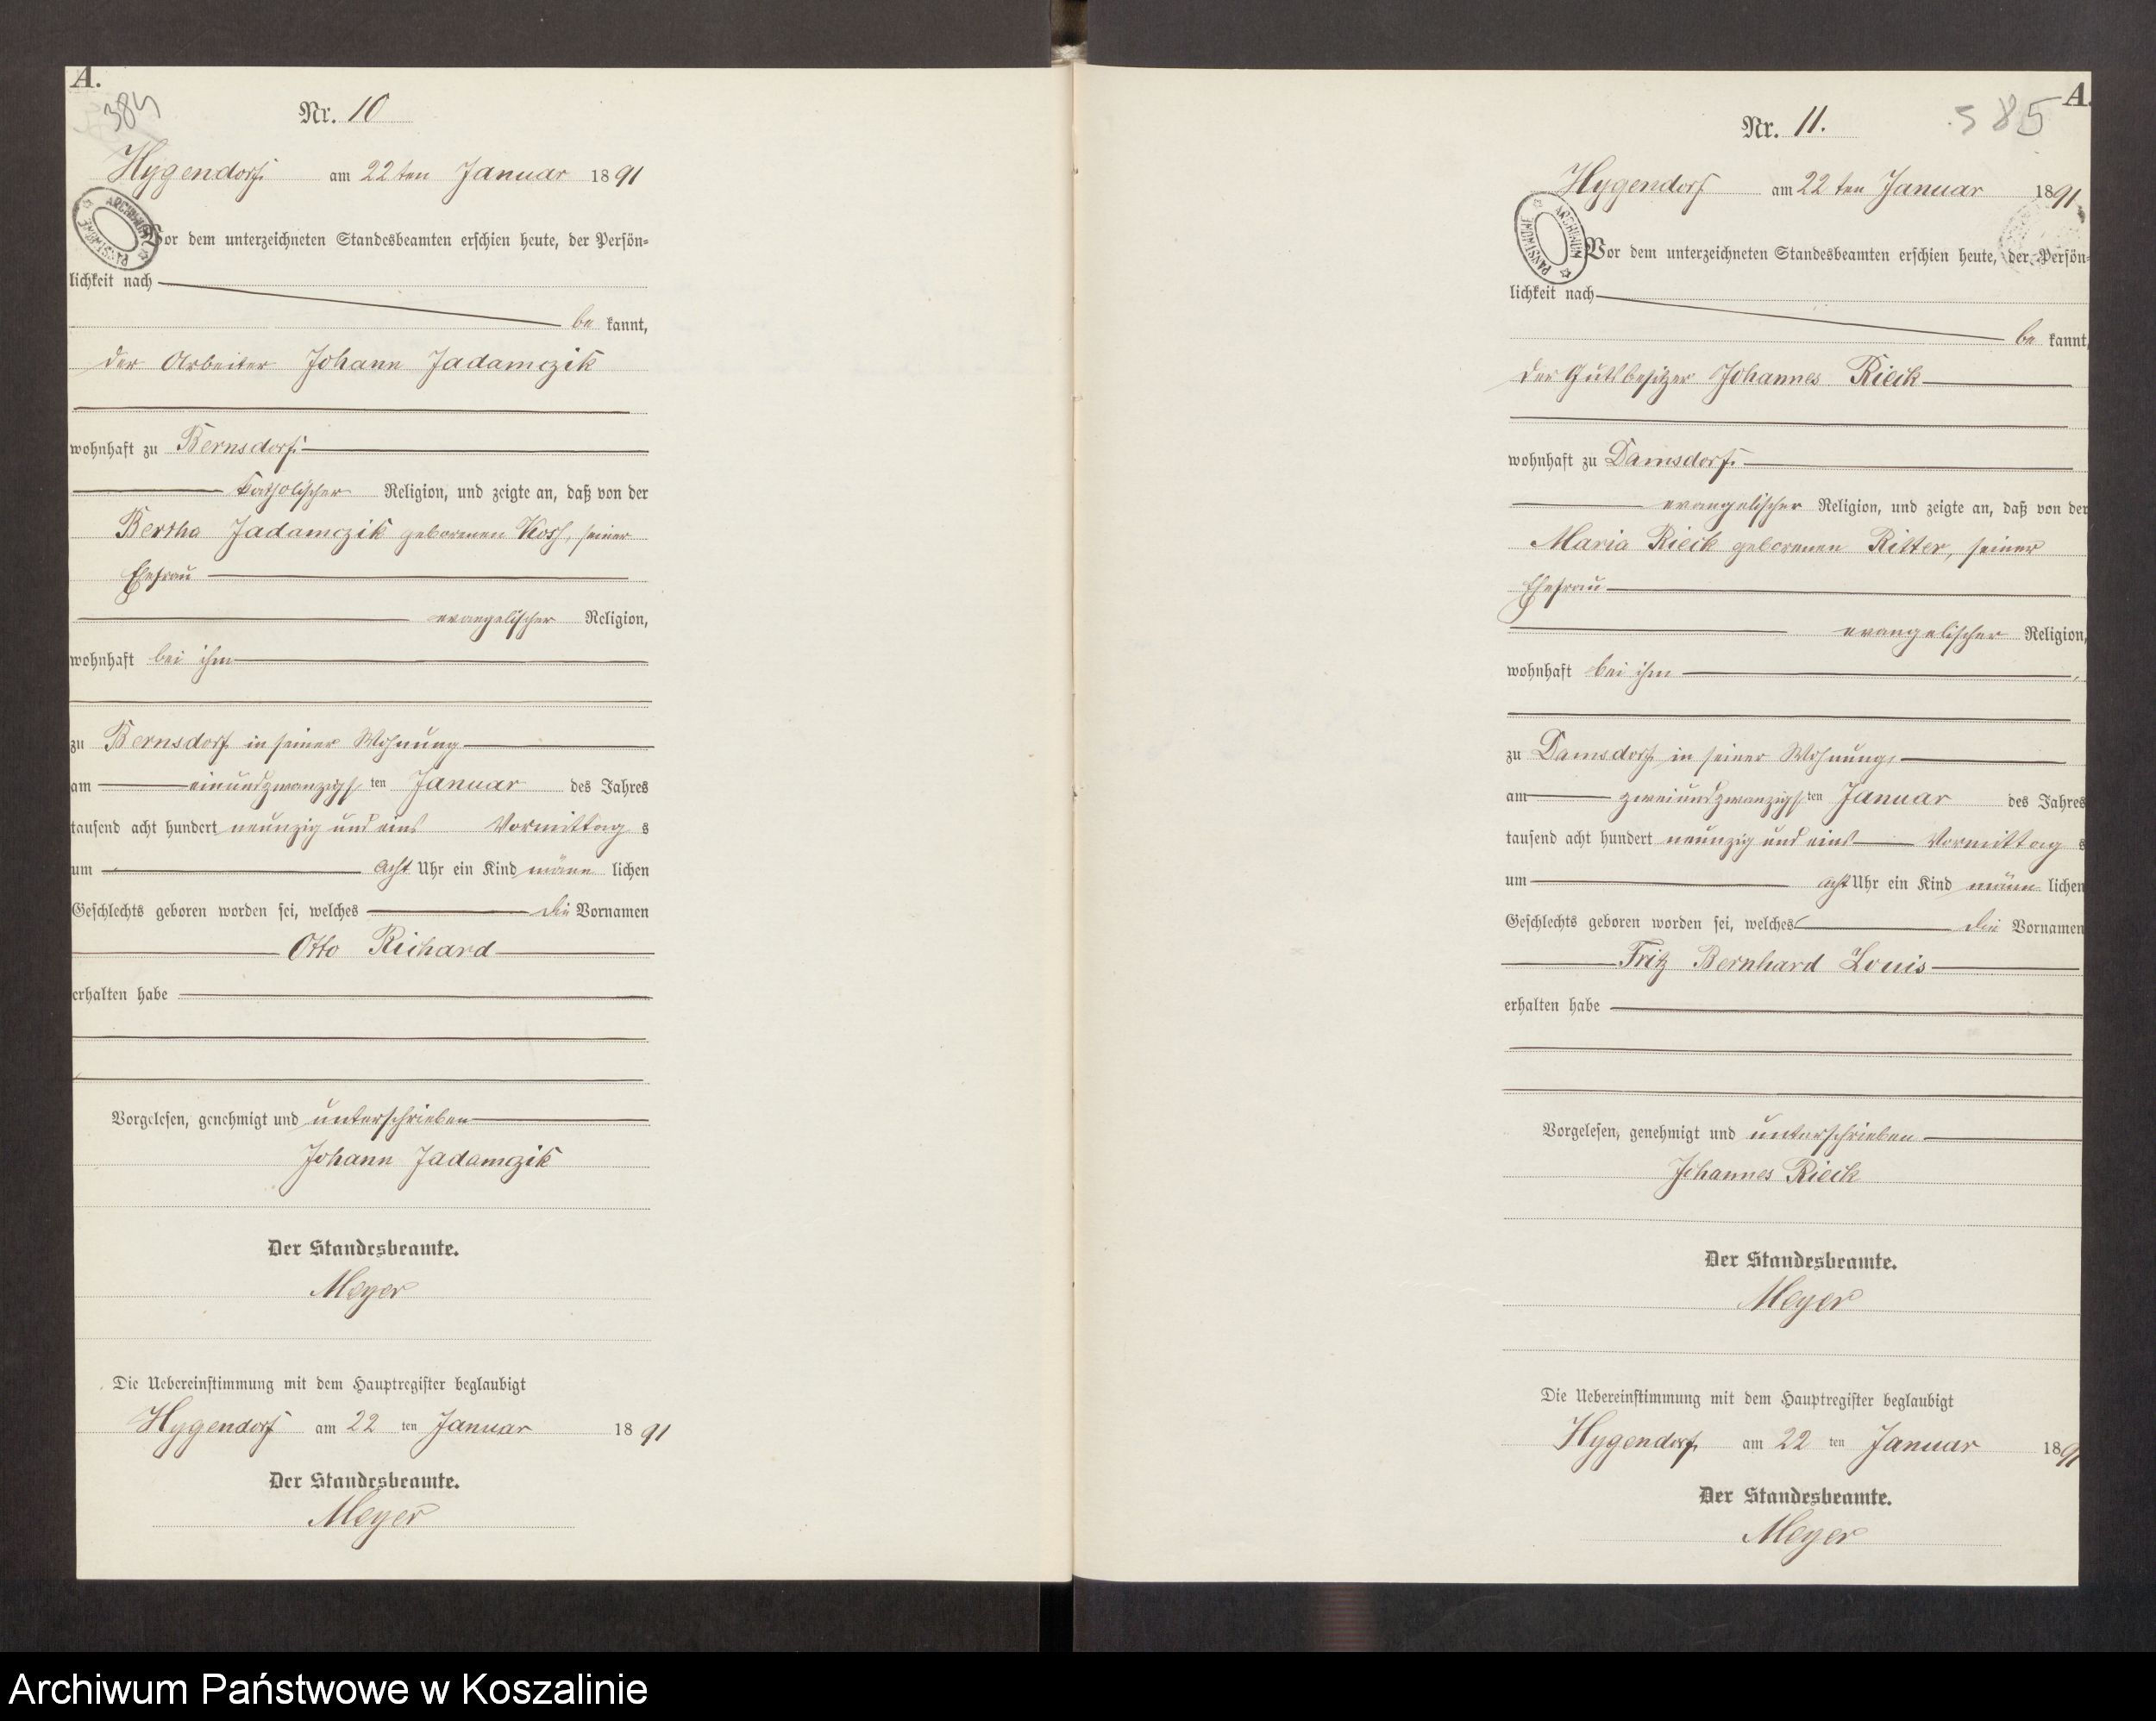 A.
384
Nr. 10
Hygendorf am 22ten Januar 1891
ARCHIWUM PAŃSTWOWE
Vor dem unterzeichneten Standesbeamten erschien heute, der Persön-
lichkeit nach
be kannt,
der Arbeiter Johann Jadamczik
wohnhaft zu Bernsdorf
katholischer Religion, und zeigte an, daß von der
Bertha Jadamczik geborenen Koss, seiner
Ehefrau
evangelischer Religion,
wohnhaft bei ihm
zu Bernsdorf in seiner Wohnung
am einundzwanzigsten Januar des Jahres
tausend acht hundert neunzig und eins Vormittags
um acht Uhr ein Kind männlichen
Geschlechts geboren worden sei, welches die Vornamen
Otto Richard
erhalten habe
Vorgelesen, genehmigt und unterschrieben
Johann Jadamczik
Der Standesbeamte.
Meyer
Die Uebereinstimmung mit dem Hauptregister beglaubigt
Hygendorf am 22 ten Januar 1891
Der Standesbeamte.
Meyer
A.
385
Nr. 11.
Hygendorf am 22 ten Januar 1891
ARCHIWUM PAŃSTWOWE
Vor dem unterzeichneten Standesbeamten erschien heute, der Persön-
lichkeit nach
be kannt,
der Gutsbesitzer Johannes Rieck
wohnhaft zu Damsdorf
evangelischer Religion, und zeigte an, daß von der
Maria Rieck geborenen Ritter, seiner
Ehefrau
evangelischer Religion,
wohnhaft bei ihm
zu Damsdorf in seiner Wohnung
am zweiundzwanzigsten Januar des Jahres
tausend acht hundert neunzig und eins Vormittags
um acht Uhr ein Kind männlichen
Geschlechts geboren worden sei, welches die Vornamen
Fritz Bernhard Louis
erhalten habe
Vorgelesen, genehmigt und unterschrieben
Johannes Rieck
Der Standesbeamte.
Meyer
Die Uebereinstimmung mit dem Hauptregister beglaubigt
Hygendorf am 22 ten Januar 1891
Der Standesbeamte.
Meyer
Archiwum Państwowe w Koszalinie